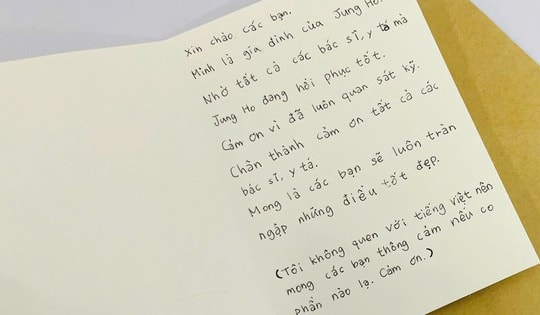 Xin chào các bạn.
Mình là gía đình của Jung Ho.
Nhờ tất cả các bác sĩ, y tá mà
Jung Ho đang hồi phục tốt.
Cảm ơn vì đã luôn quan sát kỹ.
Chân thành cảm ơn tất cả các
bác sĩ, y tá.
Mong là các bạn sẽ luôn tràn
ngập những điều tốt đẹp.
(Tôi không quen với tiếng việt nên
mong các bạn thông cảm nếu co
phần nào lạ. Cảm ơn.)